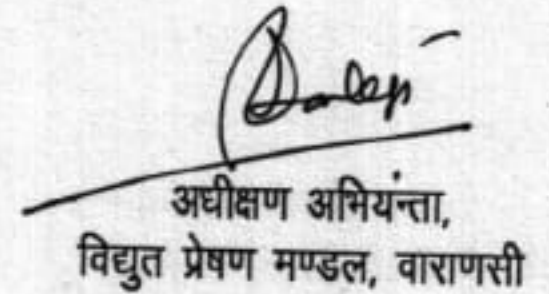 अधीक्षण अभियंन्ता,
विद्युत प्रेषण मण्डल, वाराणसी